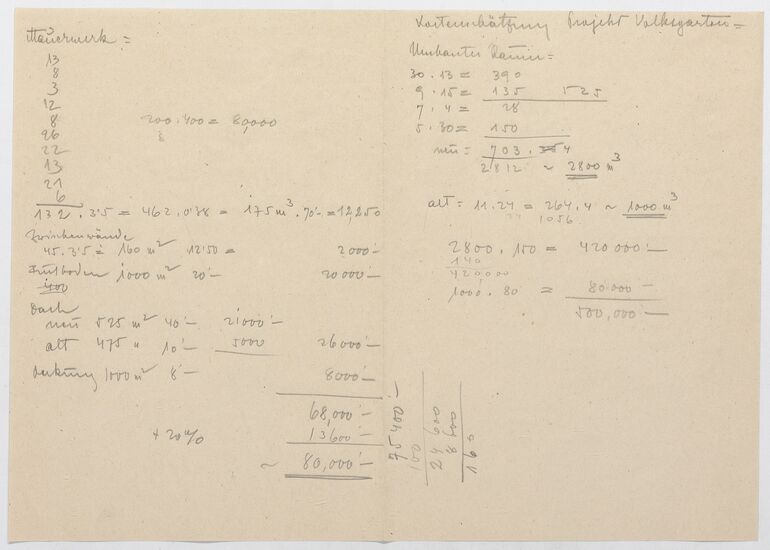 Mauerwerk =
13
8
3
12
8
26
22
13
21
6
200 . 400 = 80,000
8
132 . 3'5 = 462 . 0'38 = 175 m³ . 70'- = 12,250
Zwischenwände
45 . 3'5 = 160 m² 12'50 = 2000'-
1000 m² 20'- 20000'-
400
Dach
neu 525 m² 40'- 21000'-
alt 475 " 10'- 5000 26000'-
Deckung 1000 m² 8'- 8000'-
68,000'-
+ 20% 13600'-
~ 80,000'-
Kostenschätzung Projekt Volksgarten =
Umbauter Raum =
30 . 13 = 390
9 . 15 = 135 525
7 . 4 = 28
5 . 30 = 150
neu = 703 . 4
2812 ~ 2800 m³
alt = 11.24 = 264.4 ~ 1000 m³
1056
2800 . 150 = 420000'-
140
420,000
1000 . 80 = 80000'-
500,000'-
75400'-
150
24000
8000
160